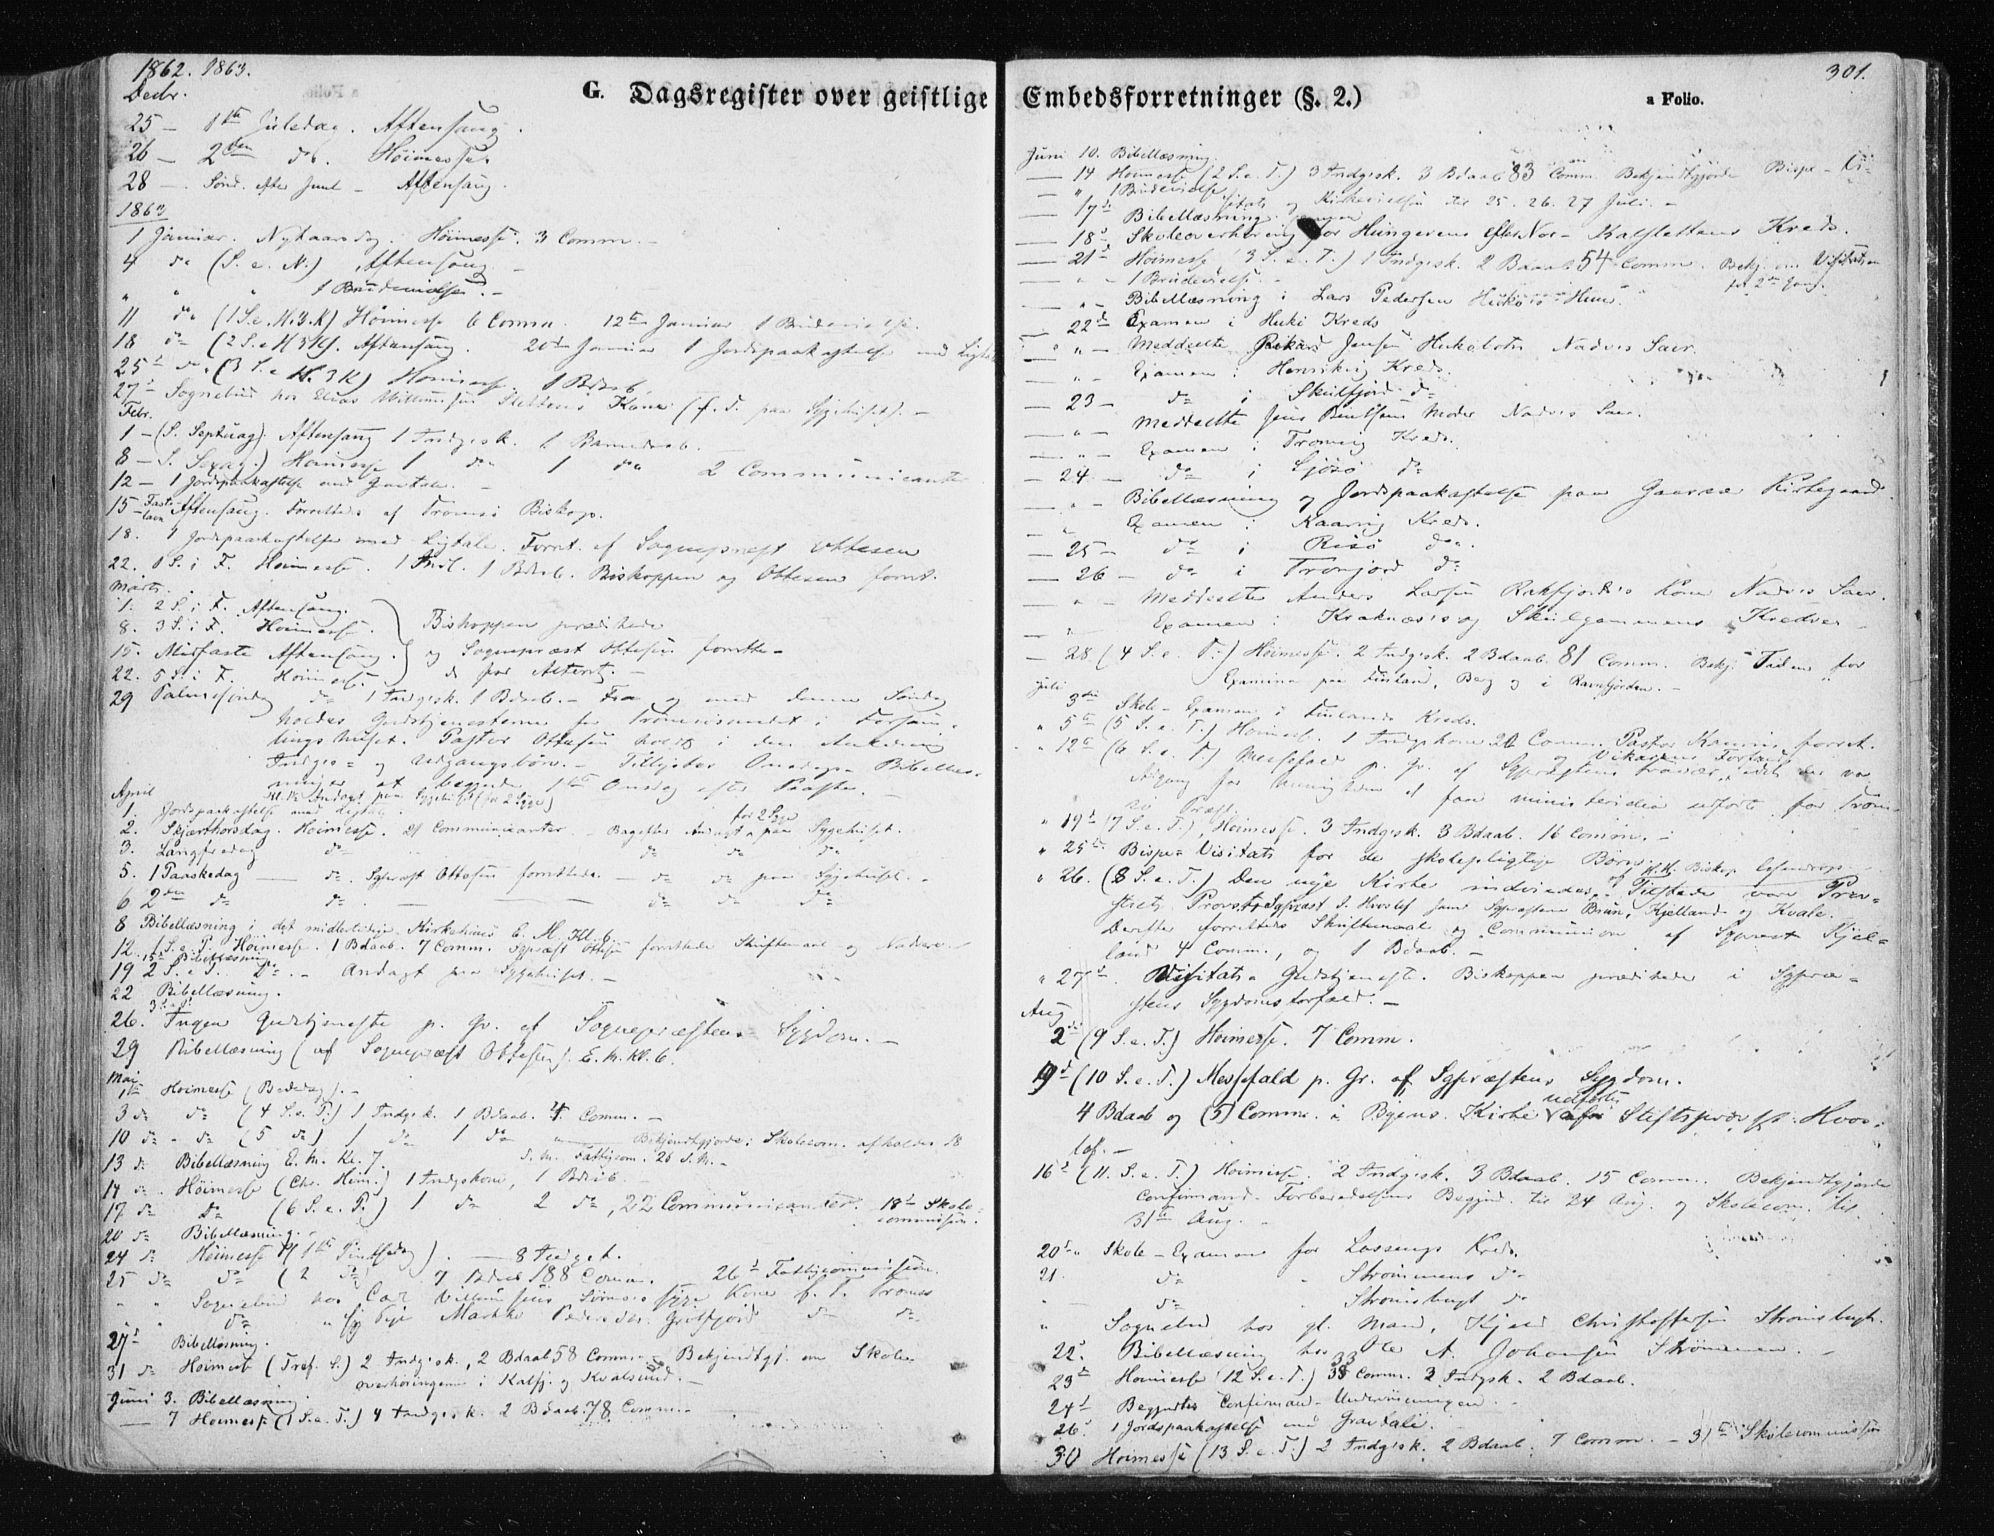 1862. 1863.
G. Dagsregister over geistlige
Decbr.
25 - 1ste Juledag. Aftensang.
26 - 2den do. Høimesse.
28 - Sønd. efter Juul - Aftensang.
1863
1 Januar. Nytaarsdag. Høimesse. 3 Comm. -
4 do (S. e. N.) Aftensang. -
" " " 1 Brudevielse. -
11 do (1 S. e. H. 3. K) Høimesse 6 Comm. 12te Januar 1 Brudevielse.
18 do (2 S. e H 3 K). Aftensang. 20de Januar 1 Jordpaakastelse med Ligtale
25de do. (3 S. e H. 3 K) Høimesse. 1 Bdaab.
27de Sognebud hos Kone (f. T. paa Sygehuset). -
Febr.
1 - (S. Septuag). Aftensang 1 Indgisk. 1 Barnedaab. -
8 - S. Sexag.) Høimesse 1 do 1 do 2 Communicanter
12 - 1 Jordpaakastelse med Gravtale. -
15 - Fastelavn Aftensang. Forrettedes af Tromsø Biskop.
18. 1 Jordpaakastelse med Ligtale. Forret. af Sognepræst Ottesen
22. 1 S. i F. Høimesse. 1 Indl. 1 Bdaab. Biskoppen og Ottesen forret.
Marts.
1. 2 S. i F. Aftensang.
8. 3 S. i F. Høimesse. Biskoppen prædikede
15. Midfaste Aftensang. og Sognepræst Ottesen forrette-
22. 5 S. i F. Høimesse. de for Alteret. -
29 Palmesøndag do 1 Indgisk. 1 Bdaab. - Fra og med denne Søndag
holdes Gudstjenesterne for Tromsøsundet i Forsam-
lingshuset. Pastor Ottesen holdt i den Anledning
Indgis- og Udgangsbøn. - Tillystes Onsdags Bibellæs-
ninger at begynde 1ste Onsdag efter Paaske. -
April
1. Jordpaakastelse med Ligtale.
2. Skjærthorsdag. Høimesse. 21 Communicanter. - Bagefter Andagt paa Sygehuset.
3. Langfredag do do do do
5. 1 Paaskedag - do. Sgpræst Ottesen forrettede. - do do paa Sygehuset. -
6 2den do. do do do
8 Bibellæsning i det midlertidige Kirkehuus E. M. Kl. 6.
12. 1 S. e. P. Høimesse. 1 Bdaab. 7 Comm. Sgpræst Ottesen forrettede Skriftemaal og Nadvere
15de Bibellæsning
19 2 S. e P. do. - Andagt paa Sygehuset. -
22 Bibellæsning.
26. Ingen Gudstjeneste p. Gr. af Sognepræstens Sygdom. -
29 Bibellæsning (af Sognepræst Ottesen). E. M. Kl. 6.
Mai
1ste Høimesse (Bededag). -
3 do do (4 S. e. P.) 1 Indgisk. 1 Bdaab. 4 Comm. -
10 do - do (5 do) 1 do 1 do Bekjendtgjorde: Skolecom. afholdes 18
d. M. Fattigcom. 26 d. M. -
13 do Bibellæsning E. M. Kl. 7.
14 do. Høimesse (Chr. Him.) 1 Indgskone, 1 Bdaab.
17 do do (6 S. e. P.) 1 do 2 do, 22 Communicanter. 18de Skole-
commission.
20 do Bibellæsning. -
24 do Høimesse (1ste Pintsedag). - 8 Indget.
25 do do (2 do) 7 Bdaab 188 Comm. 26de Fattigcommission.
27de Bibellæsning.
31 do Høimesse (Tref. S.) 2 Indgisk., 2 Bdaab 58 Comm. - Bekjendtgj. om Skole-
overhøringerne i Kalfj. og Kvalsund. -
Juni 3. Bibellæsning
- 7 Høimesse (1 S. e. T.) 4 Indgisk. 2 Bdaab. 78 Comm. -
301.
Embedsforretninger (§. 2.)
a Folio.
Juni 10. Bibellæsning.
- 14 Høimesse (2 S. e. T.) 3 Indgisk. 3 Bdaab 83 Comm. Bekjendtgjorde Bispe-Vi-
- " 1 Brudevielse. sitats og Kirkevielsen til 25. 26. 27 Juli. -
- 17de Bibellæsning.
- 18de Skoleoverhøring for Hungerens Kreds.
- 21de Høimesse (3 S. e. T.) 1 Indgisk. 2 Bdaab 54 Comm. Bekj. om Visitatsen
- " - 1 Brudevielse. - for 2den Gang.
" - Bibellæsning i Lars Pedersen Huus.
- 22de Examen i Kreds
- " - Meddeelte Jensen Nadvers Sacr.
- " - Examen i Kreds.
- 23 - do i Skulsfjord do
- " - Meddeelte Jens Moder Nadvers Sacr.
- " - Examen i Tromvig Kreds.
- 24. - do i do
- " - Bibellæsning og Jordpaakastelse paa Kirkegaard.
" Examen i Kaarvig Kreds.
- 25 - do i Risø do.
- 26 - do i Tronjord do
- " - Meddeelte Anders Larsen Rakfjords Kone Nadvers Sacr.
- " Examen i Kraknæs og Skulgammens Kredser -
- 28 (4 S. e. T.) Høimesse. 2 Indgisk. 2 Bdaab. 81 Comm. Bekj. Tiden for
Examina paa Finland, Berg og i Ravnfjorden. -
Juli 3die Skole-Examen i Finlands Kreds.
" 5te (5 S. e. T.) Høimesse. 1 Indgskone 20 Comm. Pastor forret.
" 12te (6 S. e. T.) Messefald p. Gr. af Sgpræstens og Vikarens Forfald
Adgang for Menigheden at faae ministerialia udført for Trom-
sø Præst.
" 19de (7 S. e. T.), Høimesse. 3 Indgisk. 3 Bdaab. 16 Comm. -
" 25de. Bispe-Visitats for de skolepligtige Børn.
" 26. (8 S. e. T.) Den nye Kirke indviedes af H. H. Biskop Essendrop. Tilstede var Prov-
stiets Provst, Sgpræst S. Hvoslef samt Sgpræsterne Brun, Kjelland og Kvale.
Derefter forrettedes Skriftemaal og Communion af Sgpræst Kjel-
land 4 Comm., og 1 Bdaab. -
" 27de. Visitats-Gudstjeneste. Biskoppen prædikede i Sgpræ-
stens Sygdomsforfald. -
Aug
2den (9 S. e. T.) Høimesse. 7 Comm.
9de (10 S. e. T.) Messefald p. Gr. af Sgpræstens Sygdom.
4 Bdaab og (5) Comm. i Byens Kirke udførtes af Stiftsprovst Hvos-
lef. -
16de (11. S. e. T.) Høimesse. 2 Indgisk. 3 Bdaab. 15 Comm. Bekjendtgjorde
Confirmand-Forberedelsens Begynd. til 24 Aug. og Skolecom. til
31te Aug. -
20de " Skole-Examen for Kreds.
21. do " Strømmens do
" - do " Strømsbugt do
" Sognebud hos gl. Mand, Kjeld Christoffersen Strømsbugt.
22. Bibellæsning hos Ole A. Johansen Strømmen. -
23de Høimesse 12 S. e. T.) 38 Comm. 3 Indgsk. 2 Bdaab.
24de Begyndtes Confirmand-Underviisningen. -
26. 1 Jordpaakastelse med Gravtale.
30 Høimesse (13 S. e. T.) 2 Indgisk. 2 Bdaab. 7 Comm. - 31te Skolecommission